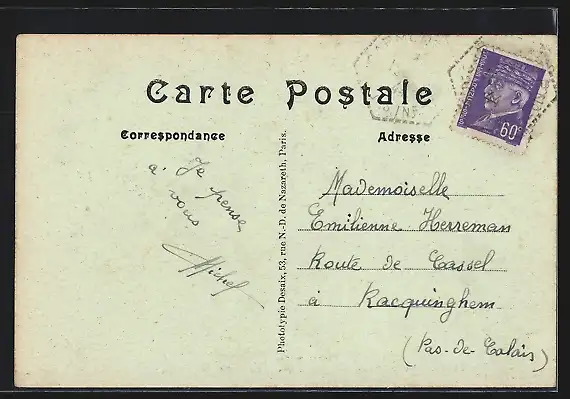 Carte Postale
Correspondance
Adresse
Je pense
à vous
Michel
Phototypie Desaix, 53, rue N.-D. de Nazareth, Paris.
60c
Mademoiselle
Emilienne Herreman
Route de Cassel
à Racquinghem
(Pas-de-Calais)